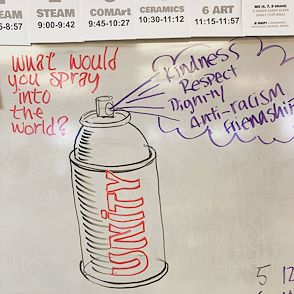 STEAM
COMArt
CERAMICS
6 ART
5-8:57
9:00-9:42
9:45-10:27
10:30-11:12
11:15-11:57
What would
you spray
into
the
world?
Kindness
Respect
Dignity
Anti-racism
Friendship
UNITY
5 12